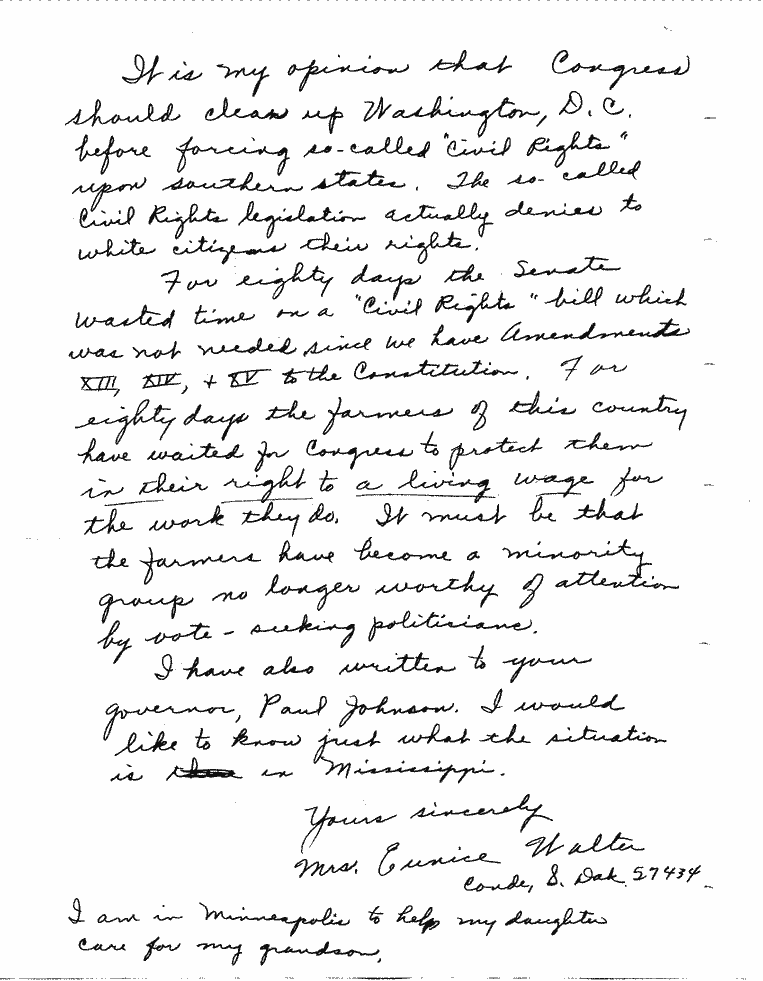 It is my opinion that Congress
should clean up Washington, D.C.
before forcing so-called "Civil Rights"
upon southern states. The so-called
Civil Rights legislation actually denies to
white citizens their rights.
For eighty days the Senate
wasted time on a "Civil Rights" bill which
was not needed since we have Amendments
XIII, XIV, + XV to the Constitution. For
eighty days the farmers of this country
have waited for Congress to protect them
in their right to a living wage for
the work they do. It must be that
the farmers have become a minority
group no longer worthy of attention
by vote-seeking politicians.
I have also written to your
governor, Paul Johnson. I would
like to know just what the situation
is in Mississippi.
Yours sincerely
Mrs. Eunice Walter
Conde, S. Dak. 57434
I am in Minneapolis to help my daughter
care for my grandson.